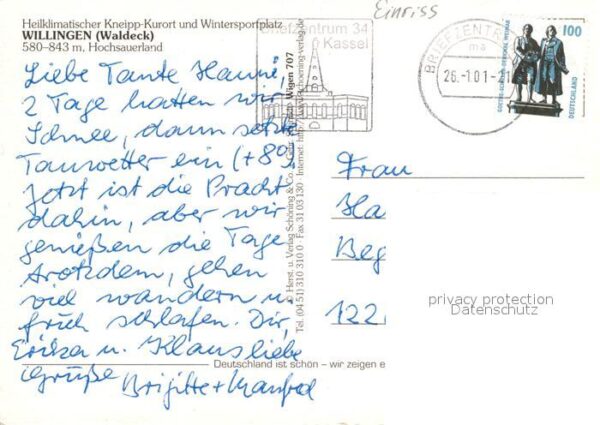 Einriss
Heilklimatischer Kneipp-Kurort und Wintersportplatz
WILLINGEN (Waldeck)
580–843 m, Hochsauerland
Liebe Tante Hanne,
2 Tage hatten wir
Schnee, dann setzte
Tauwetter ein (+8°),
Jetzt ist die Pracht
dahin, aber wir
genießen die Tage
trotzdem, gehen
viel wandern u.
früh schlafen. Dir,
Erika u. Klaus liebe
Grüße Brigitte + Manfred
Briefzentrum 34
Kassel
BRIEFZENTRUM
ma
26.-1.01.-21
100
GOETHE-SCHILLER-DENKMAL WEIMAR
DEUTSCHLAND
Wigen 707
© Herst. u. Verlag Schöning & Co.
Tel. (04 51) 310 310 0 · Fax 31 03 130 · Internet: http://www.schoening-verlag.de
Frau
Ha
Beg
122
privacy protection
Datenschutz
Deutschland ist schön – wir zeigen e